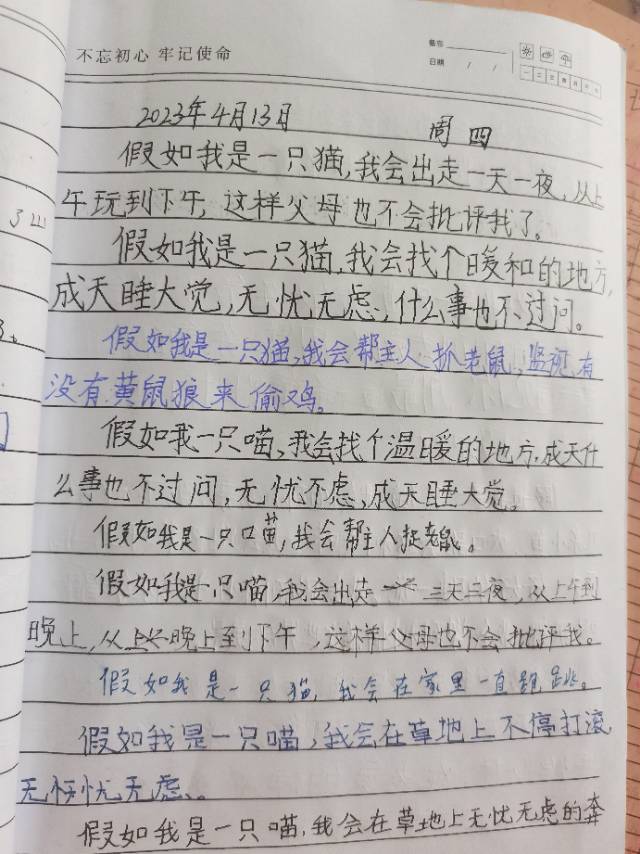 不忘初心 牢记使命
日期 / /
2023年4月13日 周四
假如我是一只猫,我会出走一天一夜,从上
午玩到下午,这样父母也不会批评我了。
假如我是一只猫,我会找个暖和的地方,
成天睡大觉,无忧无虑,什么事也不过问。
假如我是一只猫,我会帮主人抓老鼠,监视有
没有黄鼠狼来偷鸡。
假如我一只喵,我会找个温暖的地方,成天什
么事也不过问,无忧不虑,成天睡大觉。
假如我是一只喵,我会帮主人捉老鼠。
假如我是一只喵,我会出走三天三夜,从上午到
晚上,从晚上到下午,这样父母也不会批评我。
假如我是一只猫,我会在家里一直跑跳。
假如我是一只喵,我会在草地上不停打滚,
无忧无虑。
假如我是一只喵,我会在草地上无忧无虑的奔